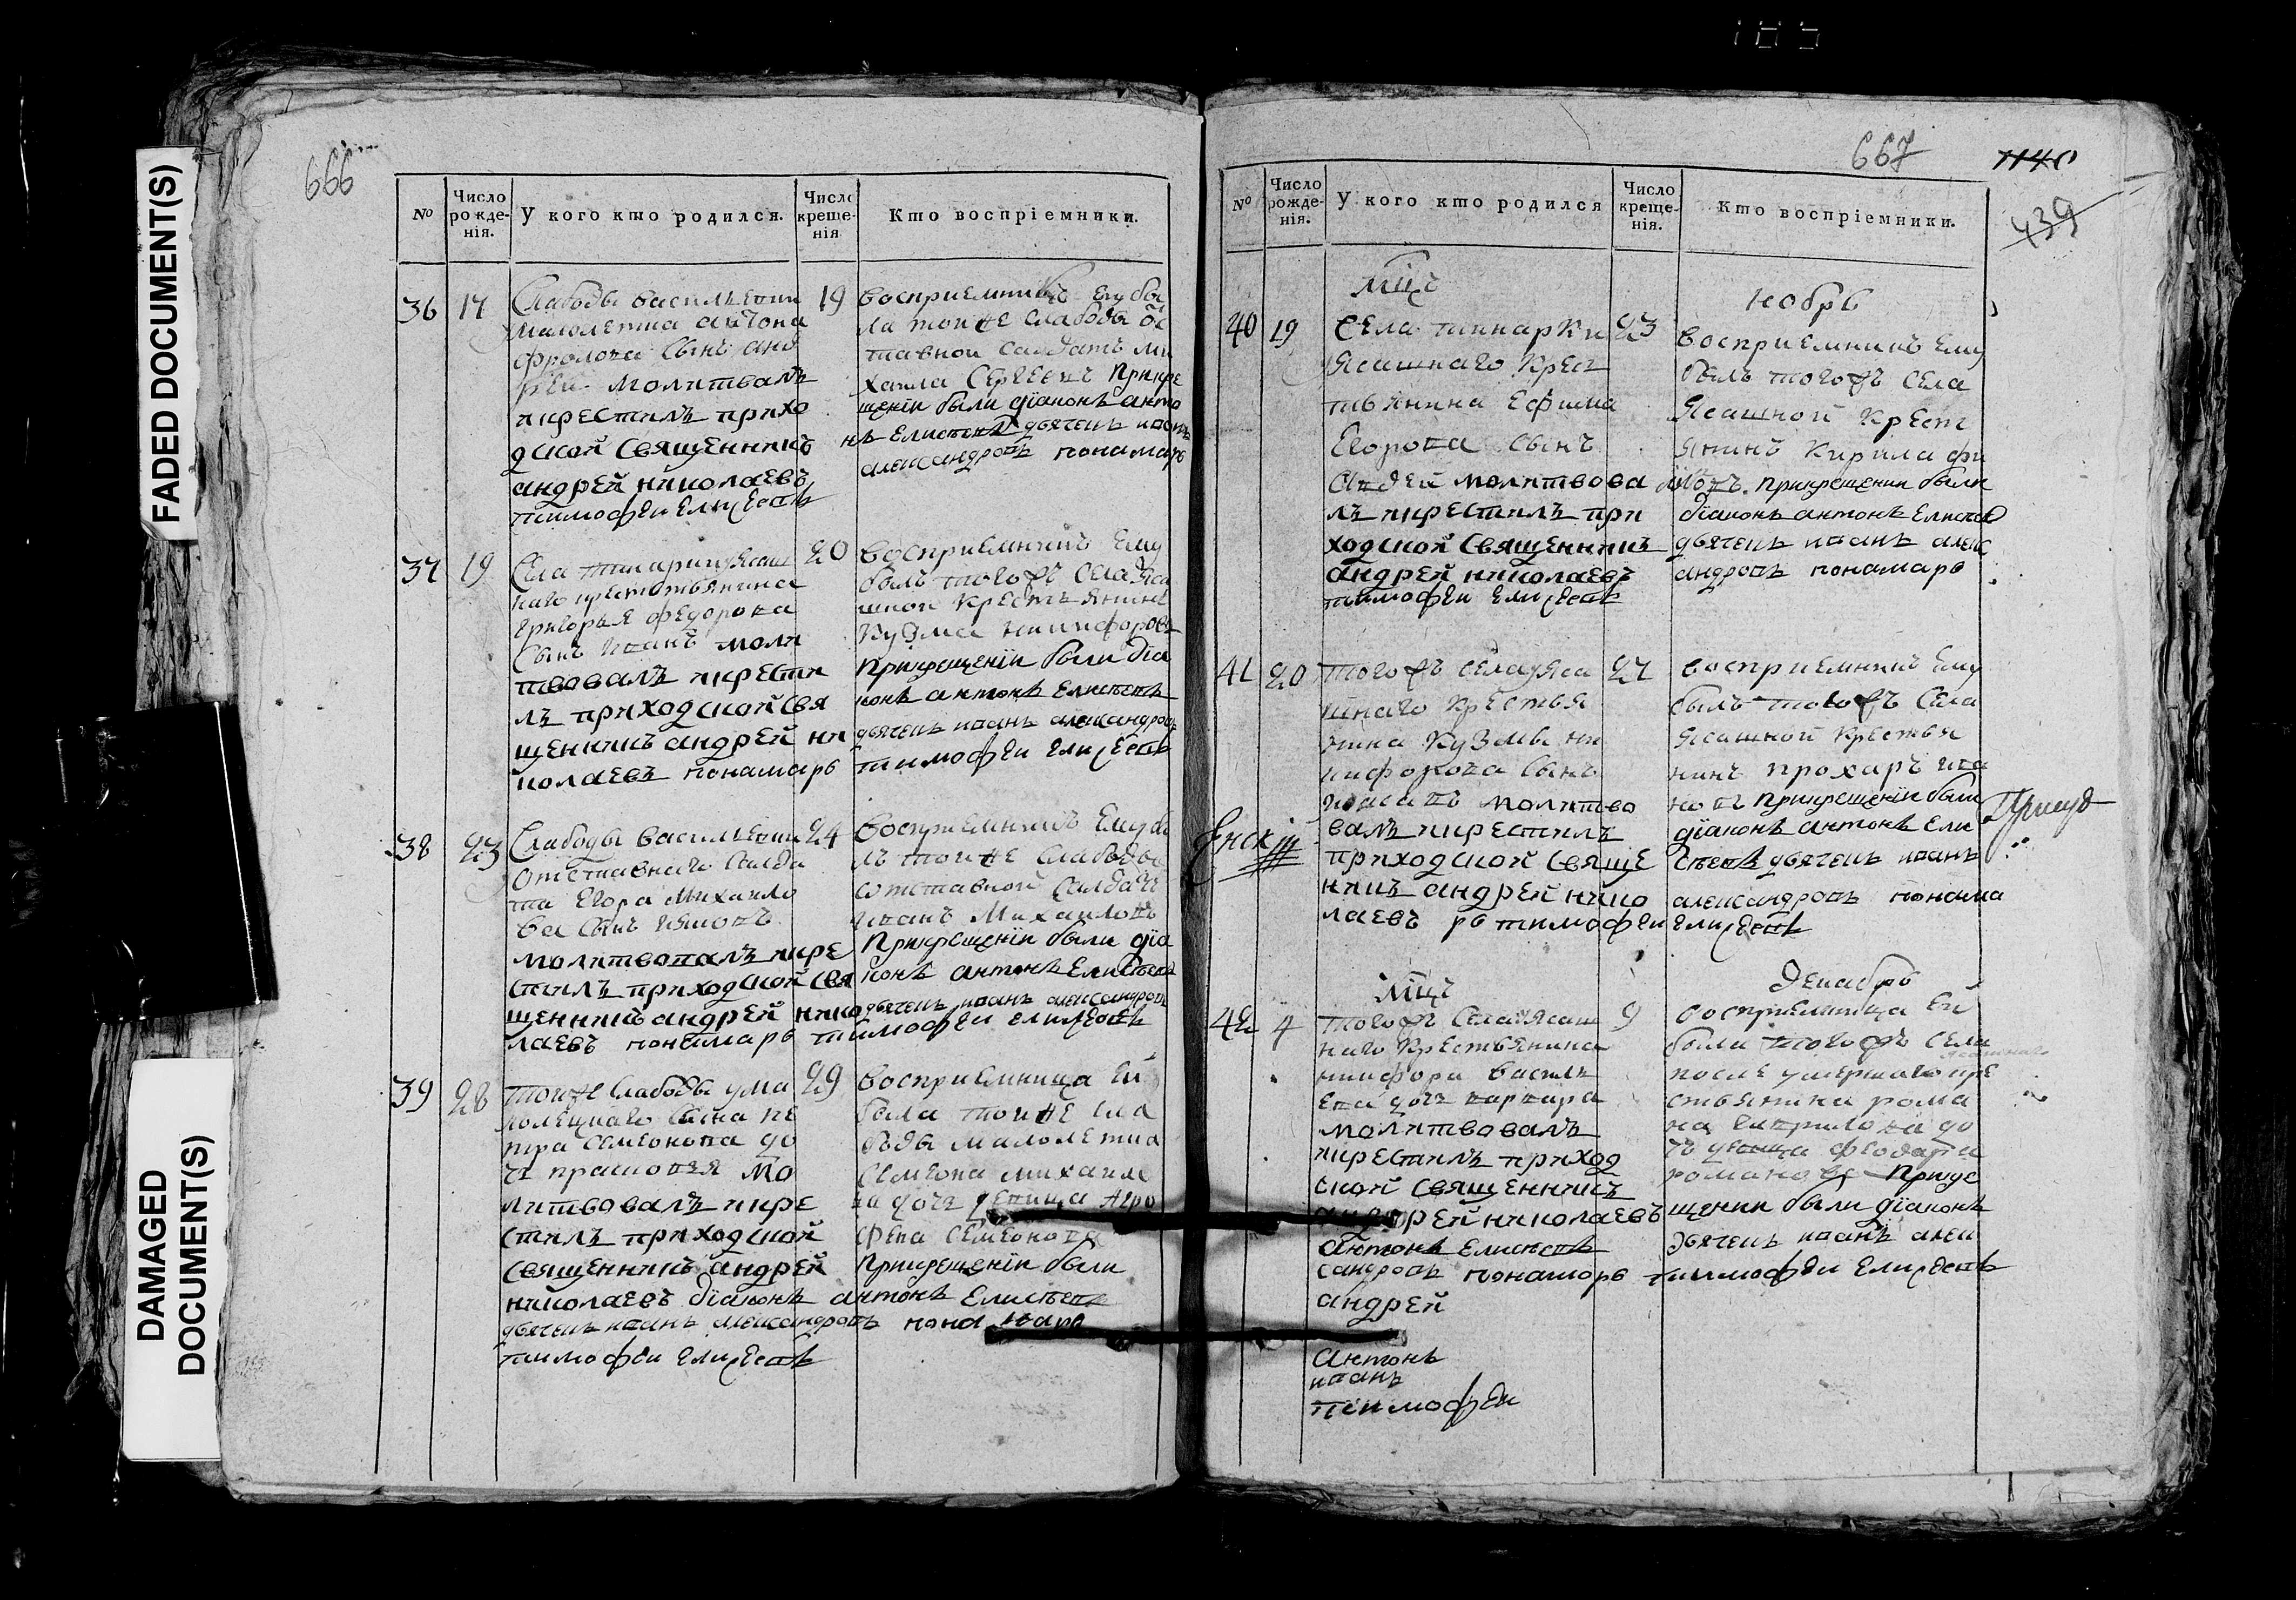 FADED DOCUMENT(S)
DAMAGED
DOCUMENT(S)
666
No
Число рожденія.
У кого кто родился.
Число крещенія
Кто воспріемники.
36 17 19
Слабоды василъевки
малолетка антона
фролова сынъ анд
рей молитвалъ
икрестилъ прихо
дской священникъ
андрей николаевъ
тимофеи елисеевъ
восприемникъ ему бы
ла тоиже слабоды
ставной салдатъ ми
хаила Сергеевъ Прикре
щеніи были діаконъ анто
нъ Елисеевъ дьячекъ иванъ
александровъ понамарь
37 19 20
наго крестьянина
григорья федорова
сынъ иванъ моли
твовалъ икрести
лъ приходской свя
щенникъ андрей ни
колаевъ понамарь
восприемникъ ему
былъ тогожъ села яса
шнои крестьянинъ
кузма никифоровъ
Прикрещеніи были діа
конъ антонъ елисеевъ
дьячекъ иванъ александровъ
тимофеи елисеевъ
38 23 24
Слабоды василъевки
отставнаго салда
та егора михаило
ва сынъ
молитвовалъ икре
стилъ приходской свя
щенникъ андрей нико
лаевъ понамарь тимофеи елисеевъ
восприемникъ ему бы
лъ тоиже слабоды
отставной салдатъ
иванъ михаиловъ
Прикрещеніи были діа
конъ антонъ елисеевъ
дьячекъ иванъ александровъ
39 28 29
тоиже слабоды ума
тра семенова до
чь прасковя мо
литвовалъ икре
стилъ приходской
священникъ андрей
николаевъ діаконъ антонъ елисеевъ
дьячекъ иванъ александровъ понамарь
тимофеи елисеевъ
восприемница ей
была тоиже сла
боды малолетка
семена михаило
ва дочь девица агро
фена семенова
Прикрещеніи были
667
1140
439
No
Число рожденія.
У кого кто родился
Число крещенія.
Кто воспріемники.
мцъ
ноябрь
40 19 23
села
ясашнаго крест
тьянина ефима
егорова сынъ
молитвова
лъ икрестилъ при
ходской священникъ
андрей николаевъ
тимофеи елисеевъ
восприемникъ ему
былъ тогожъ села
ясашной крест
янинъ кирила фи
Прикрещении были
діаконъ антонъ елисеев
дьячекъ иванъ алекс
андровъ понамарь
41 20 27
тогожъ села яса
шнаго крестья
нина кузмы ни
кифорова сынъ
молитво
валъ икрестилъ
приходской свяще
никъ андрей нико
лаевъ рь тимофеи елисеевъ
восприемникъ ему
былъ тогожъ села
ясашной крестья
нинъ прохаръ ива
новъ Прикрещеніи были
діаконъ антонъ ели
сеевъ дьячекъ иванъ
александровъ понама
мцъ
декабрь
42 4 9
тогожъ села ясаш
наго крестьянина
никифора василь
ева дочь варвара
молитвовалъ
икрестилъ приход
ской священникъ
андрей николаевъ
антонъ елисеевъ
сандровъ понамарь тимофеи елисеевъ
андрей
антонъ
иванъ
тимофеи
восприемница ей
была тогожъ села
ясашнаго
после умершаго кре
стьянина рома
на гаврилова до
чь девица феодотя
романова Прикре
щении были діаконъ
дьячекъ иванъ алек